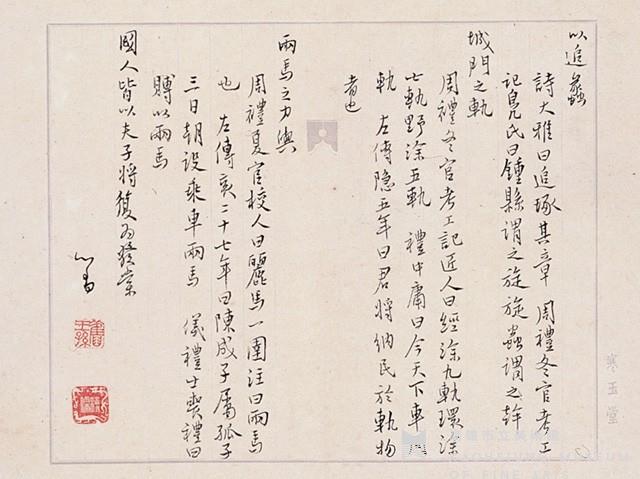 以追蠡
詩大雅曰追琢其章 周禮冬官考工
記鳧氏曰鍾縣謂之旋旋蟲謂之幹
城門之軌
周禮冬官考工記匠人曰經涂九軌環涂
七軌野涂五軌 禮中庸曰今天下車
軌 左傳隱五年曰君將納民於軌物
者也
兩馬之力與
周禮夏官校人曰麗馬一圉注曰兩馬
也 左傳哀二十七年曰陳成子屬孤子
三日朝設乘車兩馬 儀禮士喪禮曰
賵以兩馬
國人皆以夫子將復為發棠
心畬
舊王孫
寒玉堂
高雄市立美術館
KAOHSIUNG MUSEUM
OF FINE ARTS